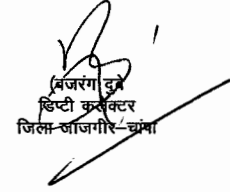 (बजरंग दुबे
डिप्टी कलेक्टर
जिला-जांजगीर-चांपा